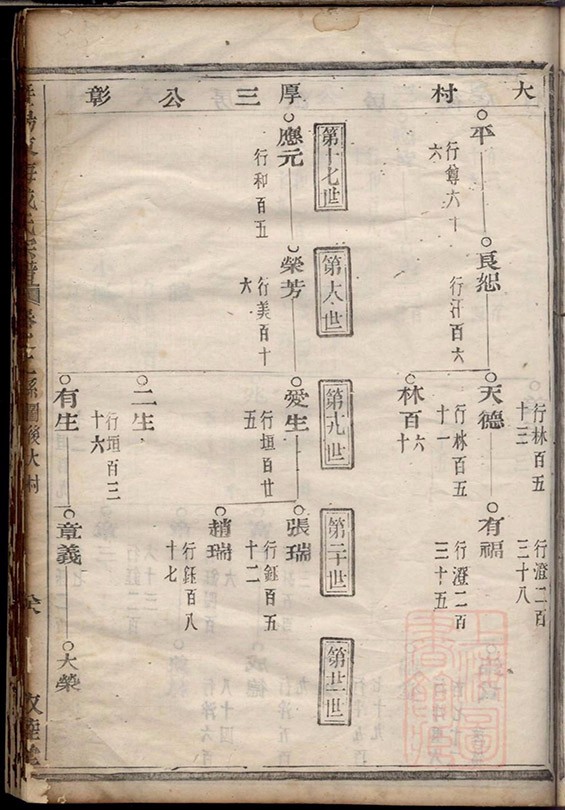 大村厚三公彰
行林百五十三
行澄二百三十八
平
行尊六十六
良恕
行汗百六
天德
行林百五十一
有福
行澄二百三十五
林百六十
第十七世
第十八世
第十九世
第二十世
第廿一世
應元
行和百五
榮芳
行美百十六
愛生
行垣百廿五
張瑞
行鈺百五十二
趙瑞
行鈺百八十七
二生
行垣百三十六
有生
章義
大榮
系圖後大村